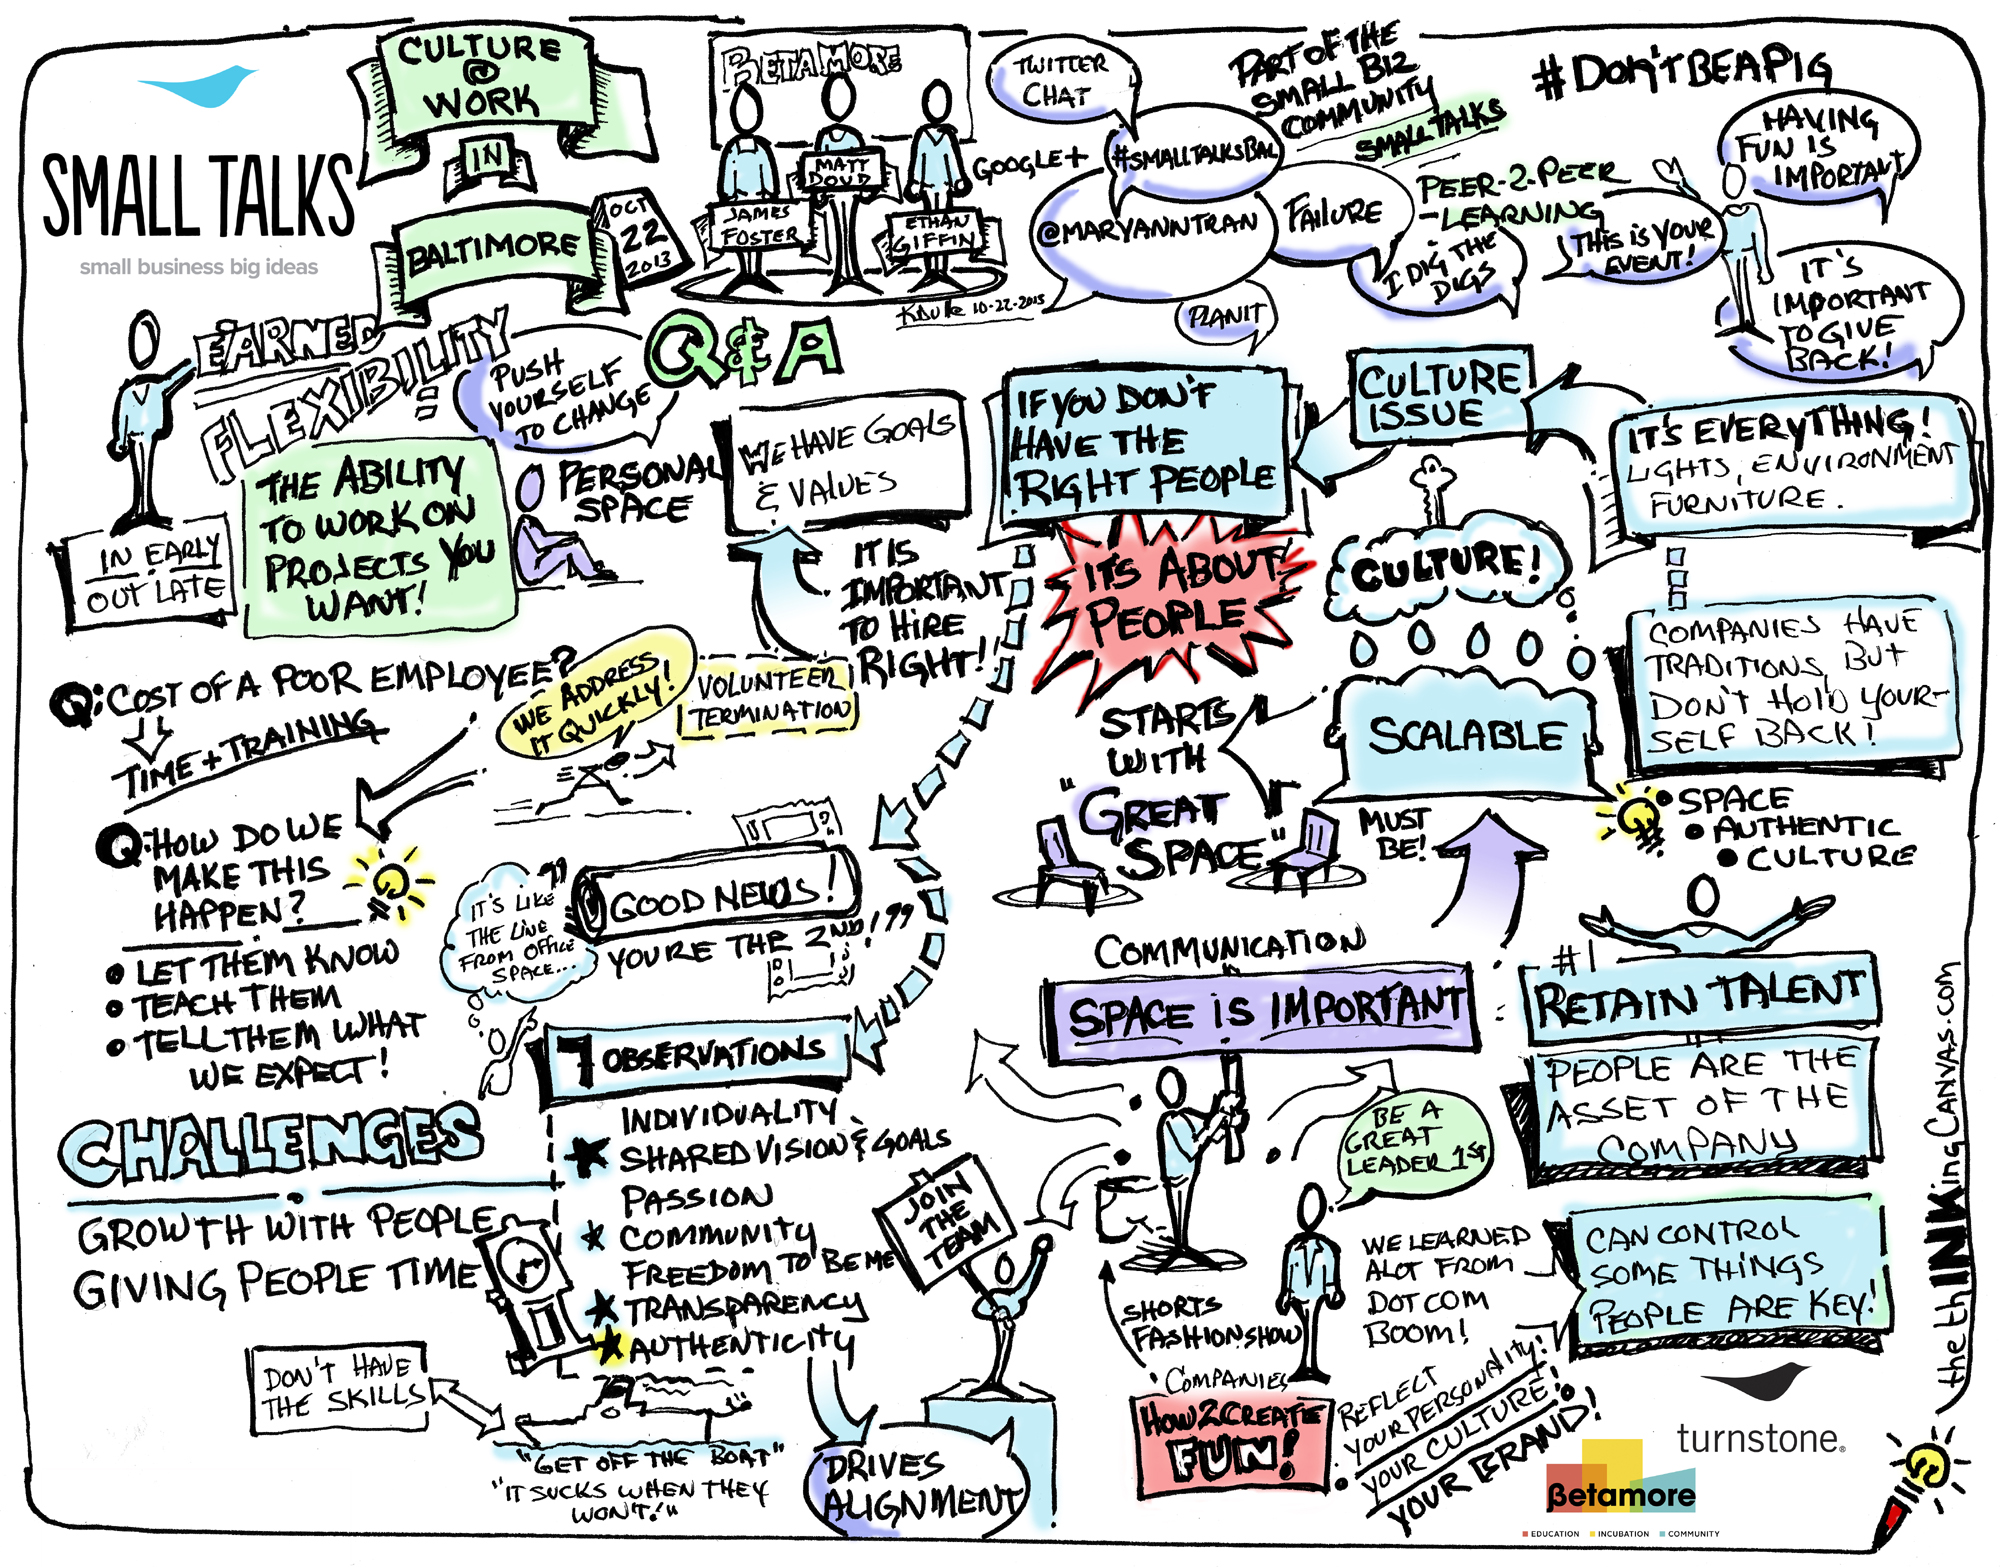 SMALL TALKS
small business big ideas
CULTURE
@
WORK
IN
BALTIMORE
OCT
22
2013
BETAMORE
MATT
DOUD
JAMES
FOSTER
ETHAN
GIFFIN
KDuke 10-22-2013
TWITTER
CHAT
GOOGLE+
#SMALLTALKSBAL
@MARYANNTRAN
PLANIT
PART OF THE
SMALL BIZ
COMMUNITY
SMALL TALKS
FAILURE
PEER-2-PEER
-LEARNING
I DIG THE
DIGS
THIS IS YOUR
EVENT!
#DON'TBEAPIG
HAVING
FUN IS
IMPORTANT
IT'S
IMPORTANT
TO GIVE
BACK!
EARNED
FLEXIBILITY
PUSH
YOURSELF
TO CHANGE
Q&A
THE ABILITY
TO WORK ON
PROJECTS YOU
WANT!
IN EARLY
OUT LATE
PERSONAL
SPACE
WE HAVE GOALS
& VALUES
IT IS
IMPORTANT
TO HIRE
RIGHT!!
IF YOU DON'T
HAVE THE
RIGHT PEOPLE
CULTURE
ISSUE
IT'S EVERYTHING!
LIGHTS, ENVIRONMENT
FURNITURE.
IT'S ABOUT
PEOPLE
CULTURE!
SCALABLE
COMPANIES HAVE
TRADITIONS, BUT
DON'T HOLD YOUR-
SELF BACK!
SPACE
AUTHENTIC
CULTURE
STARTS
WITH
"GREAT
SPACE"
MUST
BE!
Q: COST OF A POOR EMPLOYEE?
TIME + TRAINING
WE ADDRESS
IT QUICKLY!
VOLUNTEER
TERMINATION
Q: HOW DO WE
MAKE THIS
HAPPEN?
LET THEM KNOW
TEACH THEM
TELL THEM WHAT
WE EXPECT!
IT'S LIKE
THE LINE
FROM OFFICE
SPACE...
"GOOD NEWS!
YOU'RE THE 2ND!"
7 OBSERVATIONS
INDIVIDUALITY
SHARED VISION & GOALS
PASSION
COMMUNITY
FREEDOM TO BE ME
TRANSPARENCY
AUTHENTICITY
JOIN
THE
TEAM
DRIVES
ALIGNMENT
CHALLENGES
GROWTH WITH PEOPLE
GIVING PEOPLE TIME
DON'T HAVE
THE SKILLS
"GET OFF THE BOAT"
"IT SUCKS WHEN THEY
WON'T!"
COMMUNICATION
SPACE IS IMPORTANT
#1
RETAIN TALENT
PEOPLE ARE THE
ASSET OF THE
COMPANY
BE A
GREAT
LEADER 1ST
WE LEARNED
ALOT FROM
DOT COM
BOOM!
CAN CONTROL
SOME THINGS
PEOPLE ARE KEY!
SHORTS
FASHION SHOW
COMPANIES
HOW 2 CREATE
FUN!
REFLECT
YOUR PERSONALITY!
YOUR CULTURE!
YOUR BRAND!
turnstone®
βetamore
EDUCATION INCUBATION COMMUNITY
the thINKing CANVAS.com